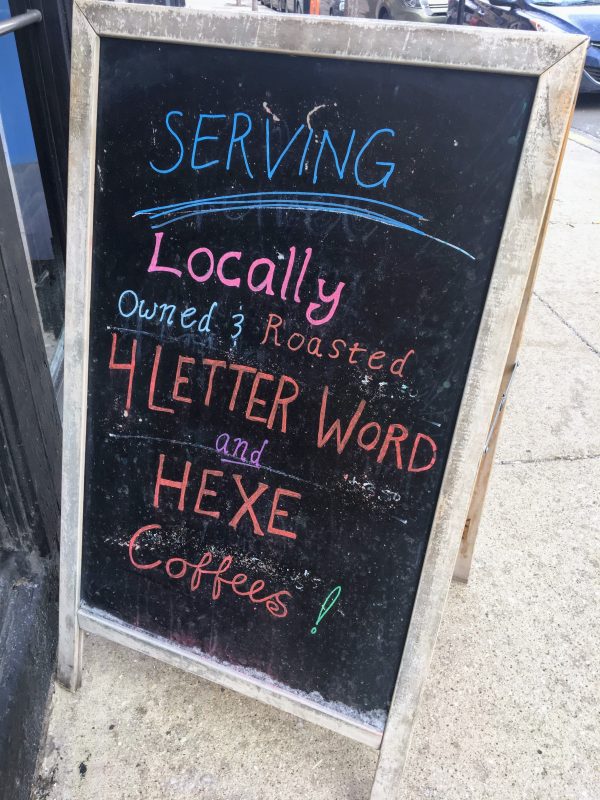 SERVING
Locally
Owned & Roasted
4 LETTER WORD
and
HEXE
Coffees!